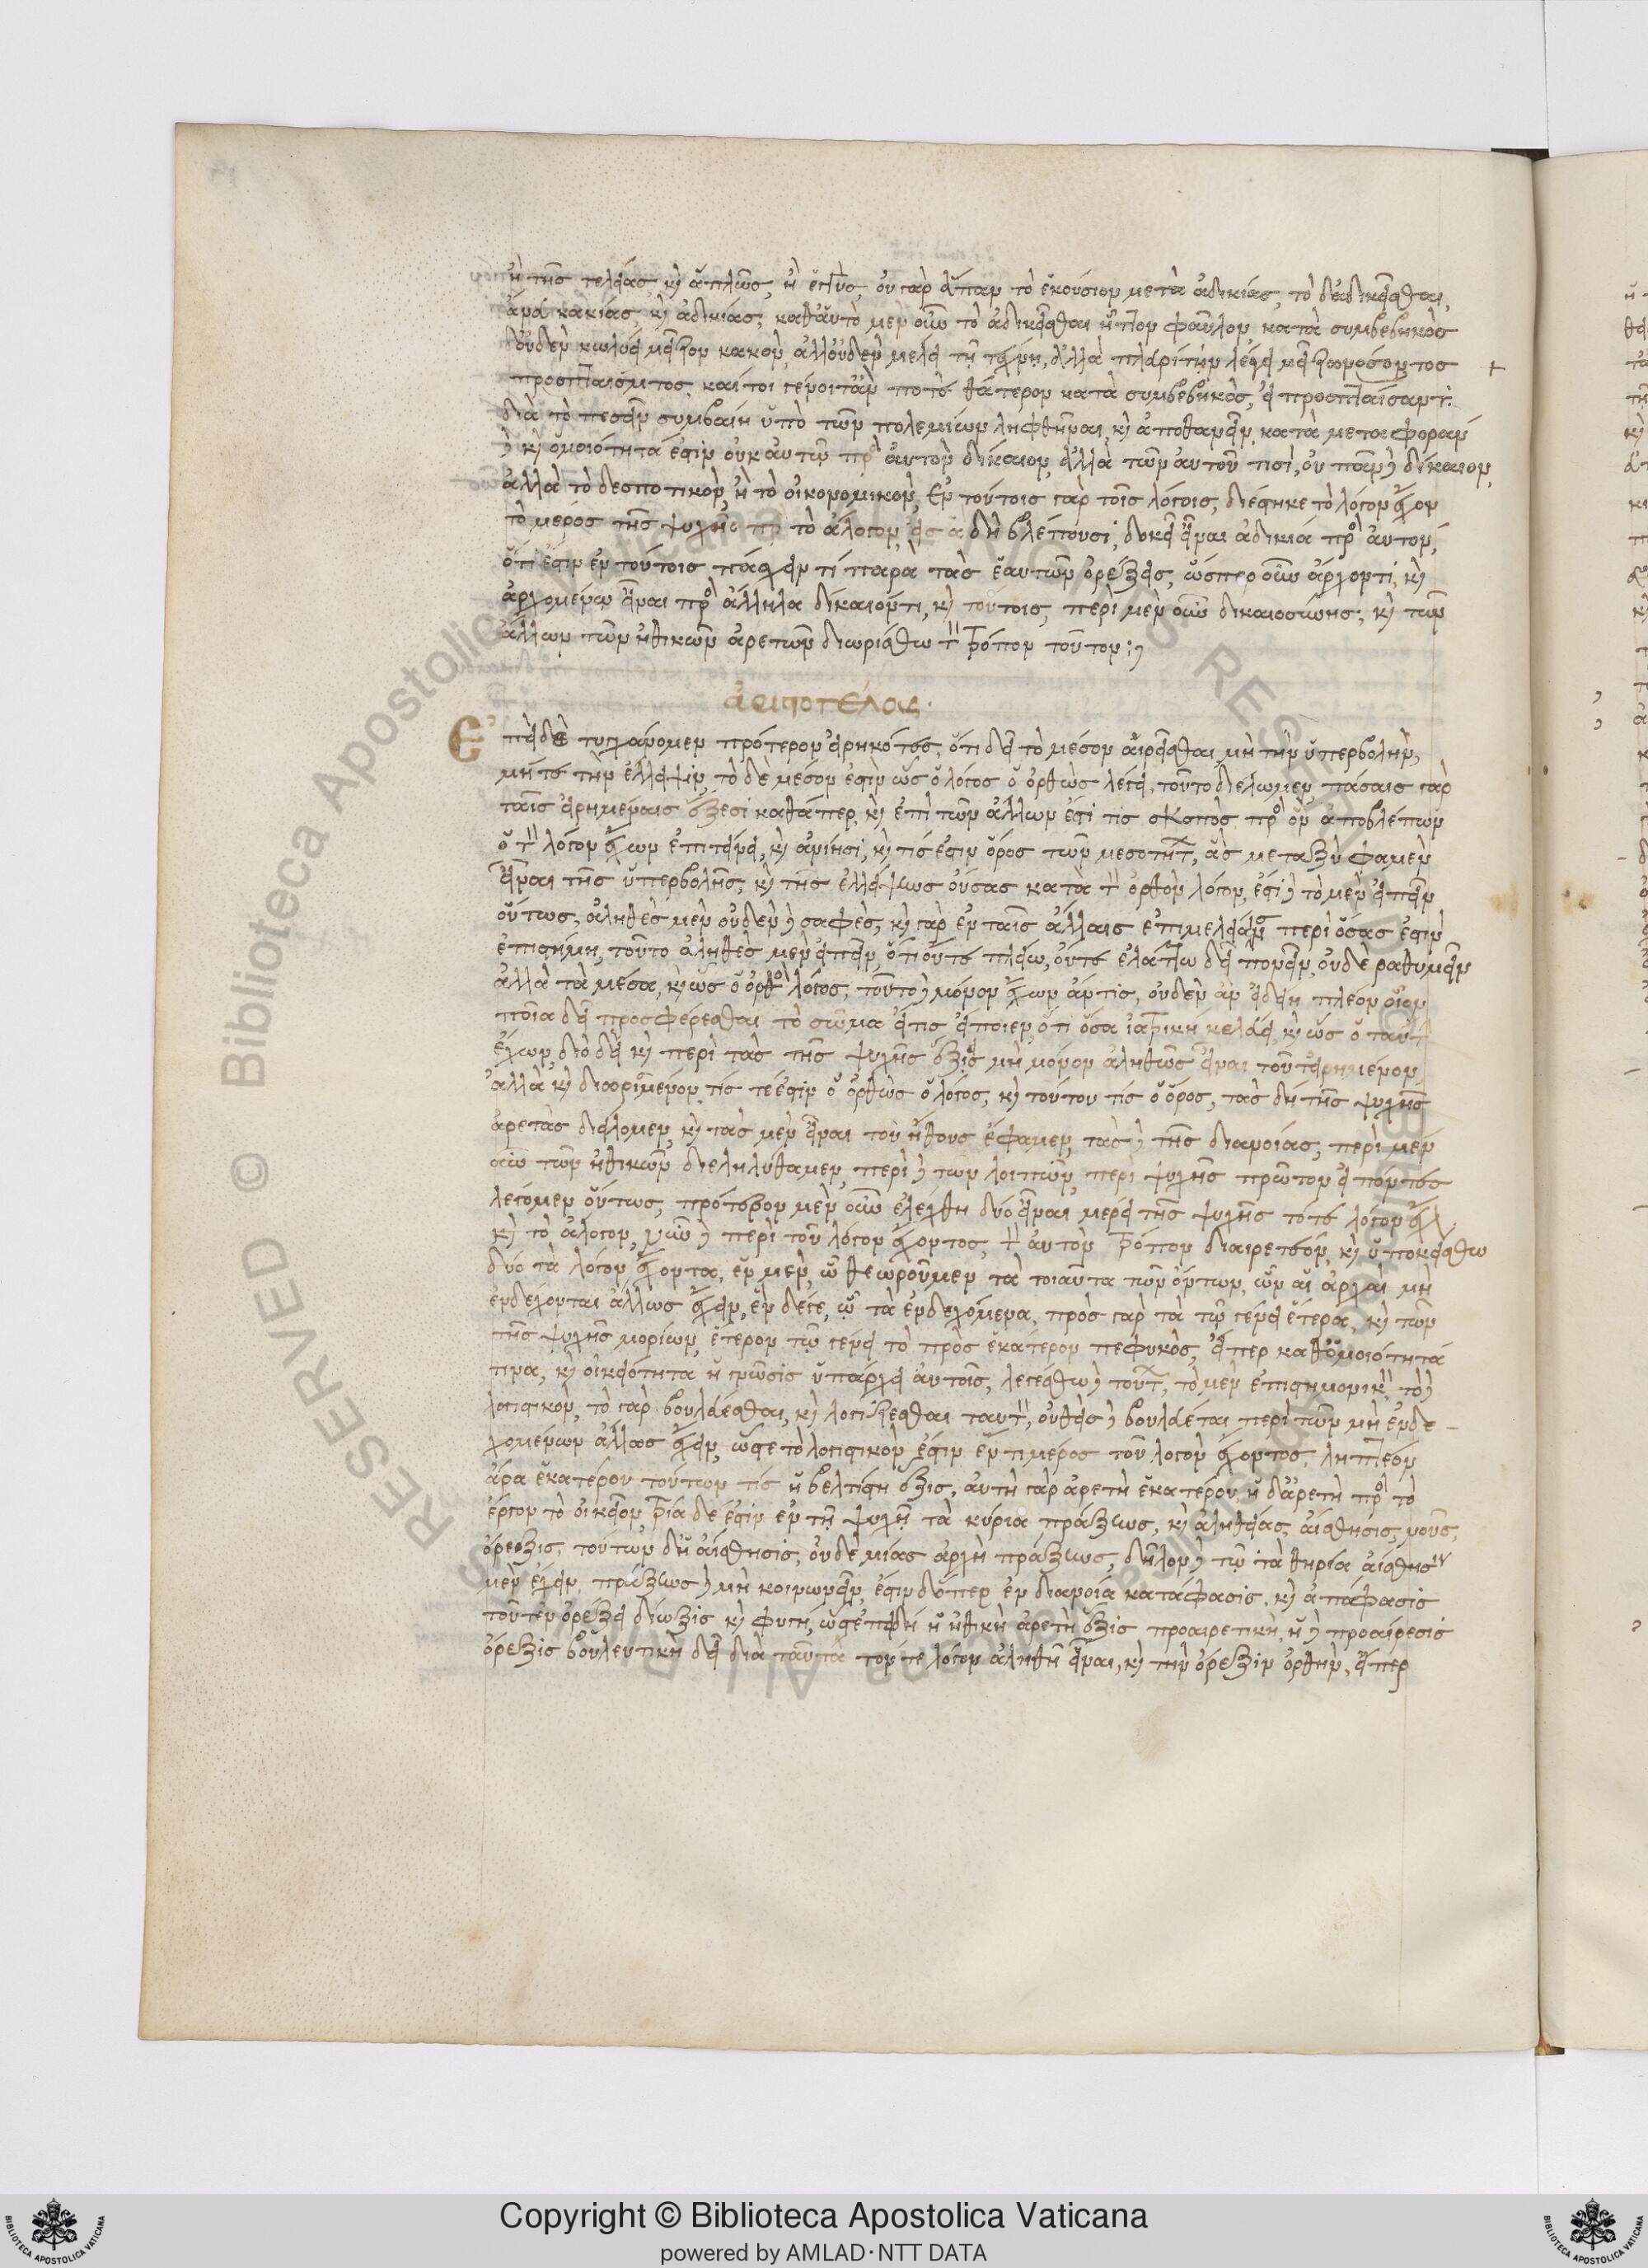 ἢ τῆς τελείας κὶ ἁπλῶς, ἢ ἐγγύς, οὐ γὰρ ἅπαν τὸ ἑκούσιον μετὰ ἀδικίας, τὸ δ' ἀδικεῖσθαι,
ἄνευ κακίας κὶ ἀδικίας; καθ' αὑτὸ μὲν οὖν τὸ ἀδικεῖσθαι ἧττον φαῦλον κατὰ συμβεβηκὸς
δ' οὐδὲν κωλύει μεῖζον κακὸν, ἀλλ' οὐδὲν μέλει τῇ τέχνῃ, ἀλλὰ πλευρῖτιν λέγει μείζω νόσον
προσπταίσματος καίτοι γένοιτ' ἄν ποτε θάτερον κατὰ συμβεβηκὸς, εἰ προσπταίσαντι
διὰ τὸ πεσεῖν συμβαίη ὑπὸ τῶν πολεμίων ληφθῆναι, κὶ ἀποθανεῖν. κατὰ μεταφορὰν
δὲ κὶ ὁμοιότητά ἐστιν οὐκ αὐτῷ πρὸς αὑτὸν δίκαιον, ἀλλὰ τῶν αὐτοῦ τισὶ, οὐ πᾶν δὲ δίκαιον,
ἀλλὰ τὸ δεσποτικὸν, ἢ τὸ οἰκονομικὸν, Ἐν τούτοις γὰρ τοῖς λόγοις, διέστηκε τὸ λόγον ἔχον
τὸ μέρος τῆς ψυχῆς πρὸς τὸ ἄλογον, εἰς ἃ δὴ βλέπουσι, δοκεῖ εἶναι ἀδικία πρὸς αὑτόν,
ὅτι ἔστιν ἐν τούτοις πάσχειν τι παρὰ τὰς ἑαυτῶν ὀρέξεις, ὥσπερ οὖν ἄρχοντι, κὶ
ἀρχομένῳ εἶναι πρὸς ἄλληλα δίκαιόν τι, κὶ τούτοις, περὶ μὲν οὖν δικαιοσύνης, κὶ τῶν
ἄλλων τῶν ἠθικῶν ἀρετῶν διωρίσθω τὸν τρόπον τοῦτον:
ἀριστοτέλους.
Ἐπεὶ δὲ τυγχάνομεν πρότερον εἰρηκότες, ὅτι δεῖ τὸ μέσον αἱρεῖσθαι, μὴ τὴν ὑπερβολὴν,
μήτε τὴν ἔλλειψιν, τὸ δὲ μέσον ἐστὶν ὡς ὁ λόγος ὁ ὀρθὸς λέγει, τοῦτο διέλωμεν, πάσαις γὰρ
ταῖς εἰρημέναις ἕξεσι καθάπερ κὶ ἐπὶ τῶν ἄλλων ἔστι τις σκοπὸς πρὸς ὃν ἀποβλέπων
ὁ τὸν λόγον ἔχων ἐπιτείνει, κὶ ἀνίησι, κὶ τίς ἐστιν ὅρος τῶν μεσοτήτων, ἃς μεταξύ φαμεν
εἶναι τῆς ὑπερβολῆς, κὶ τῆς ἐλλείψεως οὔσας κατὰ τὸν ὀρθὸν λόγον, ἔστι δὲ τὸ μὲν εἰπεῖν
οὕτως, ἀληθὲς μὲν οὐδὲν δὲ σαφὲς, κὶ γὰρ ἐν ταῖς ἄλλαις ἐπιμελείαις περὶ ὅσας ἐστὶν
ἐπιστήμη, τοῦτο ἀληθὲς μὲν εἰπεῖν, ὅτι οὔτε πλείω, οὔτε ἐλάττω δεῖ πονεῖν, οὐδὲ ῥαθυμεῖν
ἀλλὰ τὰ μέσα, κὶ ὡς ὁ ὀρθὸς λόγος, τοῦτο δὲ μόνον ἔχων ἄν τις, οὐδὲν ἂν εἰδείη πλέον οἷον
ποῖα δεῖ προσφέρεσθαι τὸ σῶμα εἴ τις εἴποιεν, ὅτι ὅσα ἰατρικὴ κελεύει κὶ ὡς ὁ ταύτην
ἔχων, διὸ δεῖ κὶ περὶ τὰς τῆς ψυχῆς ἕξεις μὴ μόνον ἀληθῶς εἶναι τοῦτ' εἰρημένον,
ἀλλὰ κὶ διωρισμένον τίς τέ ἐστιν ὁ ὀρθὸς ὁ λόγος, κὶ τούτου τίς ὁ ὅρος, τὰς δὴ τῆς ψυχῆς
ἀρετὰς διειλόμεν, κὶ τὰς μὲν εἶναι τοῦ ἤθους ἔφαμεν, τὰς δὲ τῆς διανοίας, περὶ μὲν
οὖν τῶν ἠθικῶν διεληλύθαμεν, περὶ δὲ τῶν λοιπῶν, περὶ ψυχῆς πρῶτον εἰπόντες
λέγομεν οὕτως, πρότερον μὲν οὖν ἐλέχθη δύο εἶναι μέρη τῆς ψυχῆς τό τε λόγον ἔχον,
κὶ τὸ ἄλογον, νῦν δὲ περὶ τοῦ λόγον ἔχοντος, τὸν αὐτὸν τρόπον διαιρετέον, κὶ ὑποκείσθω
δύο τὰ λόγον ἔχοντα, ἓν μὲν, ᾧ θεωροῦμεν τὰ τοιαῦτα τῶν ὄντων, ὧν αἱ ἀρχαὶ μὴ
ἐνδέχονται ἄλλως ἔχειν, ἓν δέ γε, ᾧ τὰ ἐνδεχόμενα, πρὸς γὰρ τὰ τῷ γένει ἕτερα, κὶ τῶν
τῆς ψυχῆς μορίων ἕτερον τῷ γένει τὸ πρὸς ἑκάτερον πεφυκὸς, εἴπερ καθ' ὁμοιότητά
τινα, κὶ οἰκειότητα ἡ γνῶσις ὑπάρχει αὐτοῖς, λεγέσθω δὲ τούτων, τὸ μὲν ἐπιστημονικὸν, τὸ δὲ
λογιστικὸν, τὸ γὰρ βουλεύεσθαι, κὶ λογίζεσθαι ταυτὸν, οὐθεὶς δὲ βουλεύεται περὶ τῶν μὴ ἐνδε-
χομένων ἄλλως ἔχειν, ὥστε τὸ λογιστικόν ἐστιν ἕν τι μέρος τοῦ λόγον ἔχοντος, ληπτέον
ἄρα ἑκατέρου τούτων τίς ἡ βελτίστη ἕξις, αὕτη γὰρ ἀρετὴ ἑκατέρου, ἡ δ' ἀρετὴ πρὸς τὸ
ἔργον τὸ οἰκεῖον, τρία δέ ἐστιν ἐν τῇ ψυχῇ τὰ κύρια πράξεως, κὶ ἀληθείας, αἴσθησις, νοῦς,
ὄρεξις, τούτων δ' ἡ αἴσθησις, οὐδὲ μιᾶς ἀρχὴ πράξεως, δῆλον δὲ τῷ τὰ θηρία αἴσθησιν
μὲν ἔχειν, πράξεως δὲ μὴ κοινωνεῖν, ἔστιν δ' ὅπερ ἐν διανοίᾳ κατάφασις, κὶ ἀπόφασις
τοῦτ' ἐν ὀρέξει δίωξις κὶ φυγή, ὥστ' ἐπειδὴ ἡ ἠθικὴ ἀρετὴ ἕξις προαιρετικὴ, ἡ δὲ προαίρεσις
ὄρεξις βουλευτικὴ δεῖ διὰ ταῦτα τόν τε λόγον ἀληθῆ εἶναι, κὶ τὴν ὄρεξιν ὀρθὴν, εἴπερ
Copyright © Biblioteca Apostolica Vaticana
powered by AMLAD·NTT DATA